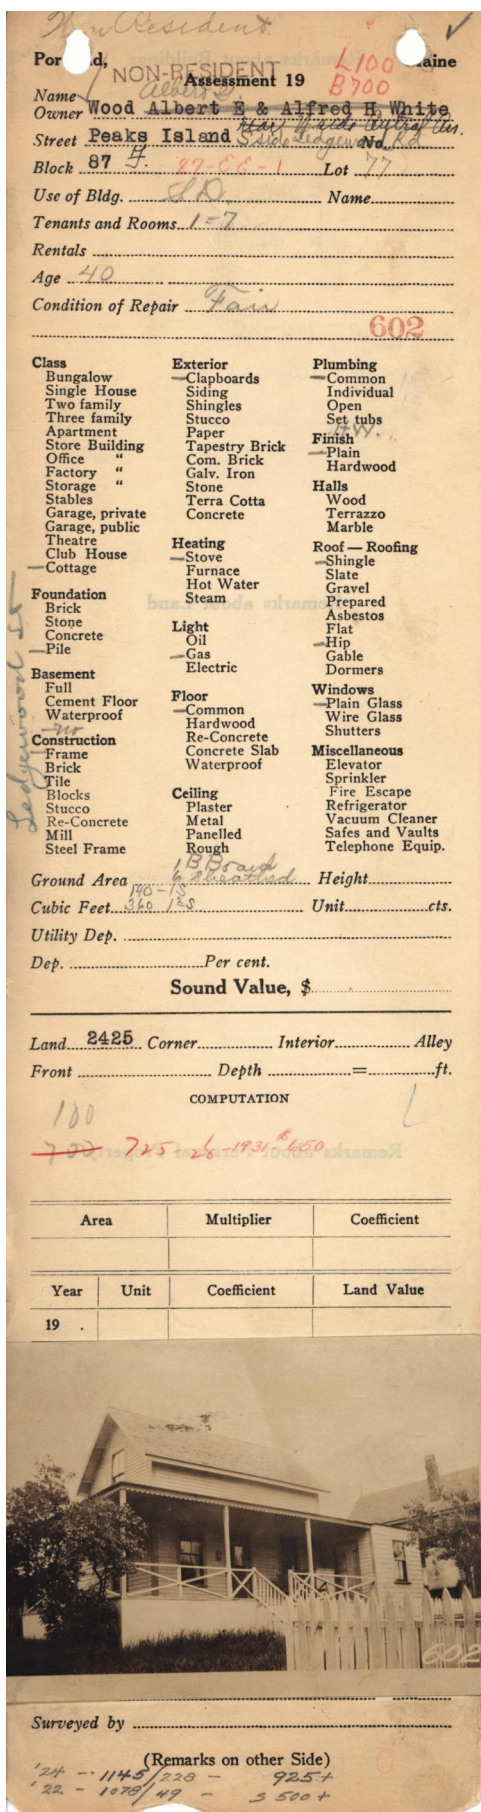 Non Resident
Portland, Maine
NON-RESIDENT
L 100
Assessment 19
B 700
Name
Owner Wood Albert E & Alfred H. White
Street Peaks Island S side Ledgewood Rd No.
Block 87 87-EE-1 Lot 77
Use of Bldg. S.D. Name
Tenants and Rooms 1-7
Rentals
Age 40
Condition of Repair Fair
602
Class
Bungalow
Single House
Two family
Three family
Apartment
Store Building
Office "
Factory "
Storage "
Stables
Garage, private
Garage, public
Theatre
Club House
Cottage
Foundation
Brick
Stone
Concrete
Pile
Basement
Full
Cement Floor
Waterproof
no
Construction
Frame
Brick
Tile
Blocks
Stucco
Re-Concrete
Mill
Steel Frame
Ledgewood St
Exterior
Clapboards
Siding
Shingles
Stucco
Paper
Tapestry Brick
Com. Brick
Galv. Iron
Stone
Terra Cotta
Concrete
Heating
Stove
Furnace
Hot Water
Steam
Light
Oil
Gas
Electric
Floor
Common
Hardwood
Re-Concrete
Concrete Slab
Waterproof
Ceiling
Plaster
Metal
Panelled
Rough
1 B Board
6 Sheathed
Plumbing
Common
Individual
Open
Set tubs
H.W.
Finish
Plain
Hardwood
Halls
Wood
Terrazzo
Marble
Roof — Roofing
Shingle
Slate
Gravel
Prepared
Asbestos
Flat
Hip
Gable
Dormers
Windows
Plain Glass
Wire Glass
Shutters
Miscellaneous
Elevator
Sprinkler
Fire Escape
Refrigerator
Vacuum Cleaner
Safes and Vaults
Telephone Equip.
Ground Area 190-1S Height
Cubic Feet 360 1½S Unit cts.
Utility Dep.
Dep. Per cent.
Sound Value, $
Land 2425 Corner Interior Alley
Front Depth = ft.
COMPUTATION
100
700 725 26-1931-$650
Area Multiplier Coefficient
Year Unit Coefficient Land Value
19 .
602
Surveyed by
(Remarks on other Side)
'24 - 1145/228 - 925+
'22 - 1078/49 - S 500+